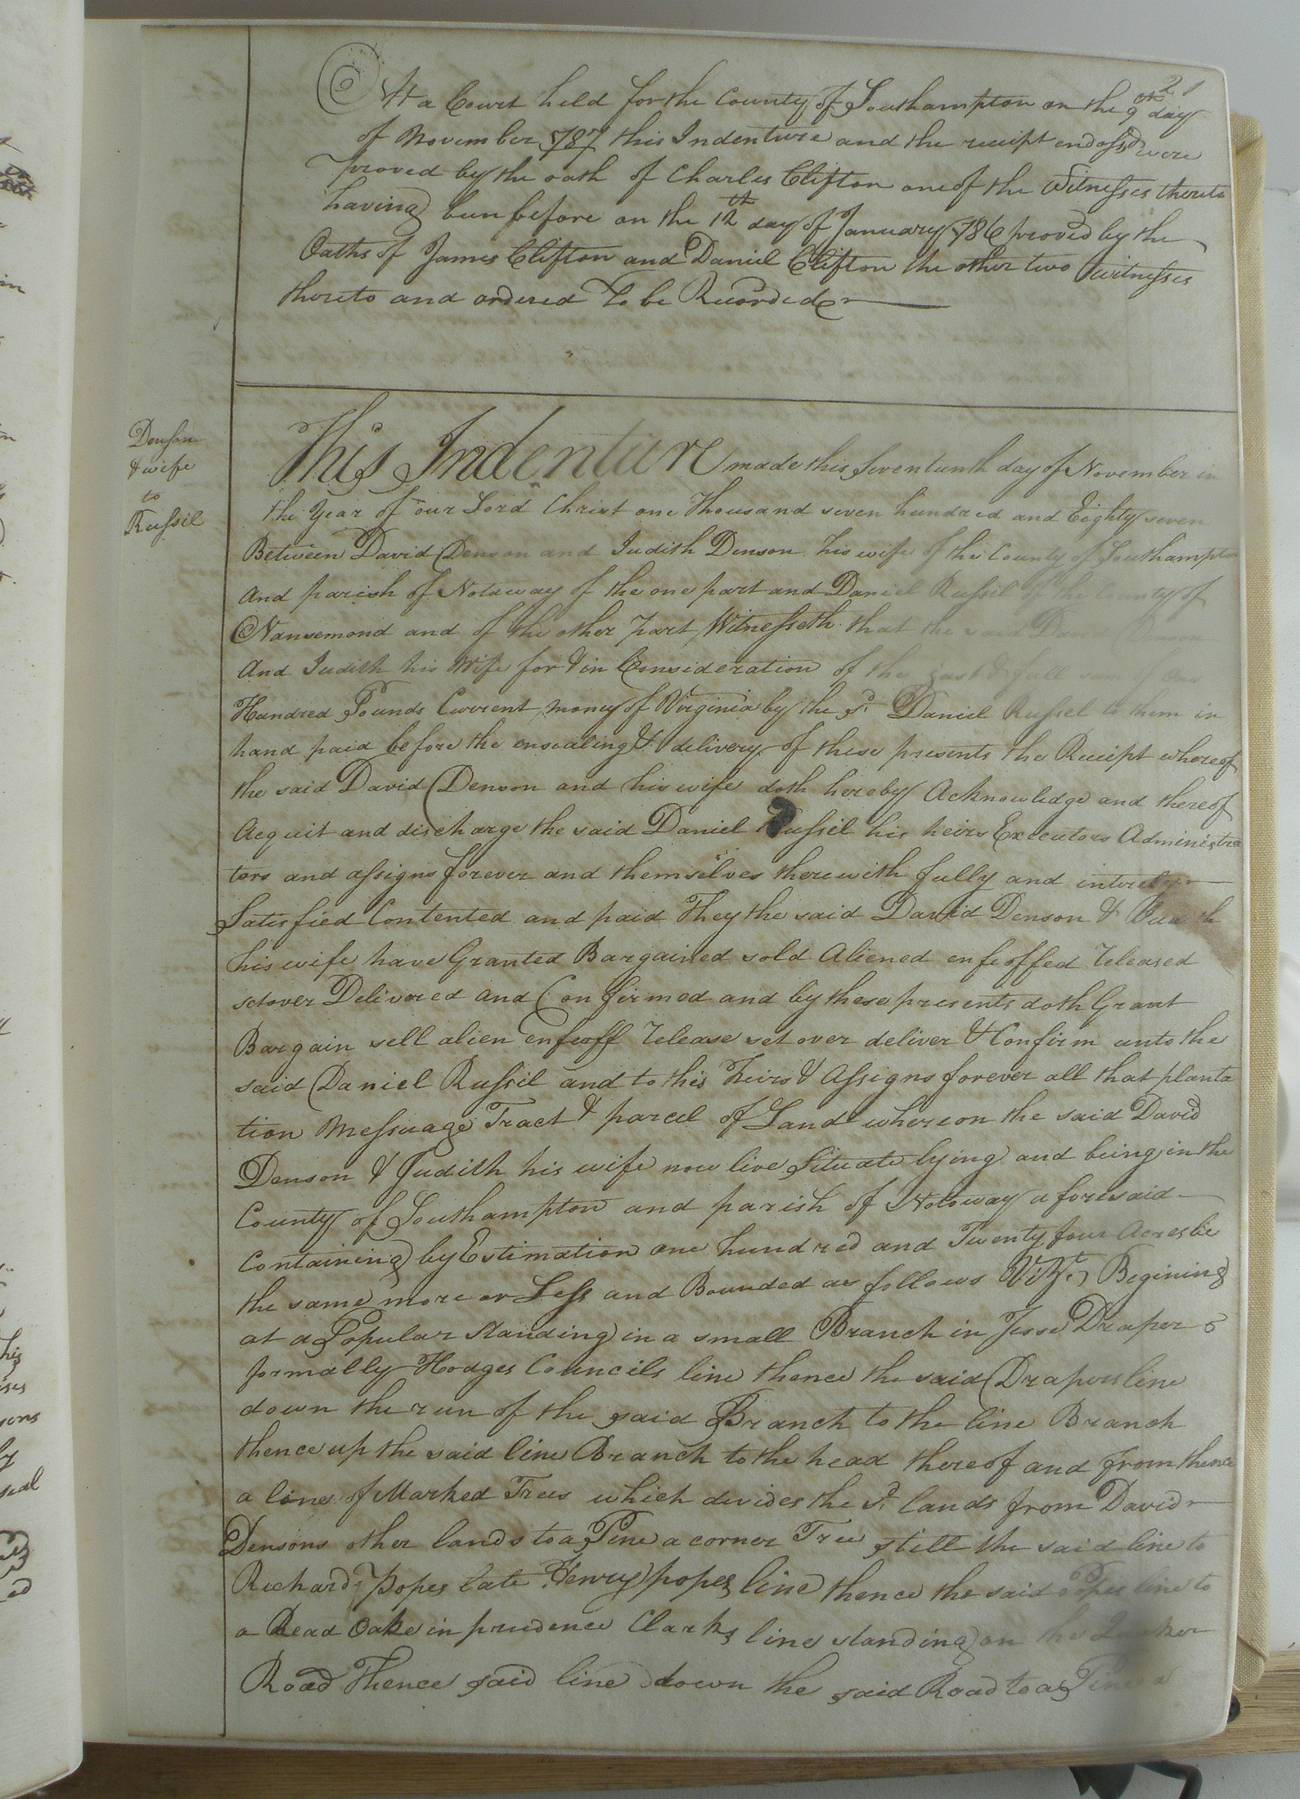 21
At a Court held for the County of Southampton on the 9th day
of November 1787 this Indenture and the receipt endorsd were
proved by the oath of Charles Clifton one of the Witnesses thereto
having been before on the 12th day of January 1786 proved by the
Oaths of James Clifton and Daniel Clifton the other two witnesses
thereto and ordered To be Recorded
Denson
& wife
to
Russil
This Indenture made this Seventeenth day of November in
the Year of our Lord Christ one Thousand seven hundred and Eighty seven
Between David Denson and Judith Denson his wife of the County of Southampton
And parish of Notoway of the one part and Daniel Russil of the County of
Nansemond and of the other part Witnesseth that the said David Denson
And Judith his Wife for & in Consideration of the just & full sum of One
Hundred Pounds Current money of Virginia by the sd. Daniel Russel to them in
hand paid before the ensealing & delivery of these presents the Receipt whereof
the said David Denson and his wife doth hereby Acknowledge and thereof
Acquit and discharge the said Daniel Russil his heirs Executors Administra
tors and assigns forever and themselves therewith fully and intirely
Satisfied Contented and paid They the said David Denson &
his wife have Granted Bargained sold Aliened enfeoffed released
setover Delivered and Confirmed and by these presents doth Grant
Bargain sell alien enfeoff release set over deliver & Confirm unto the
said Daniel Russil and to his heirs & Assigns forever all that planta
tion Messuage Tract & parcel of Land whereon the said David
Denson & Judith his wife now live Situate lying and being in the
County of Southampton and parish of Notoway aforesaid
Containing by Estimation one hundred and Twenty four Acres be
the same more or Less and Bounded as follows Vizt. Begining
at a Popular standing in a small Branch in Jesse Drapers
formally Hodges Councils line thence the said Drapers line
down the run of the said Branch to the line Branch
thence up the said line Branch to the head thereof and from thence
a line of Marked Trees which devides the sd. lands from David
Densons other lands to a Pine a corner Tree still the said line to
Richard Popes late Henry popes line thence the said popes line to
a Dead Oake in prudence Clarks line standing on the Quaker
Road Thence said line down the said Road to a Pine a